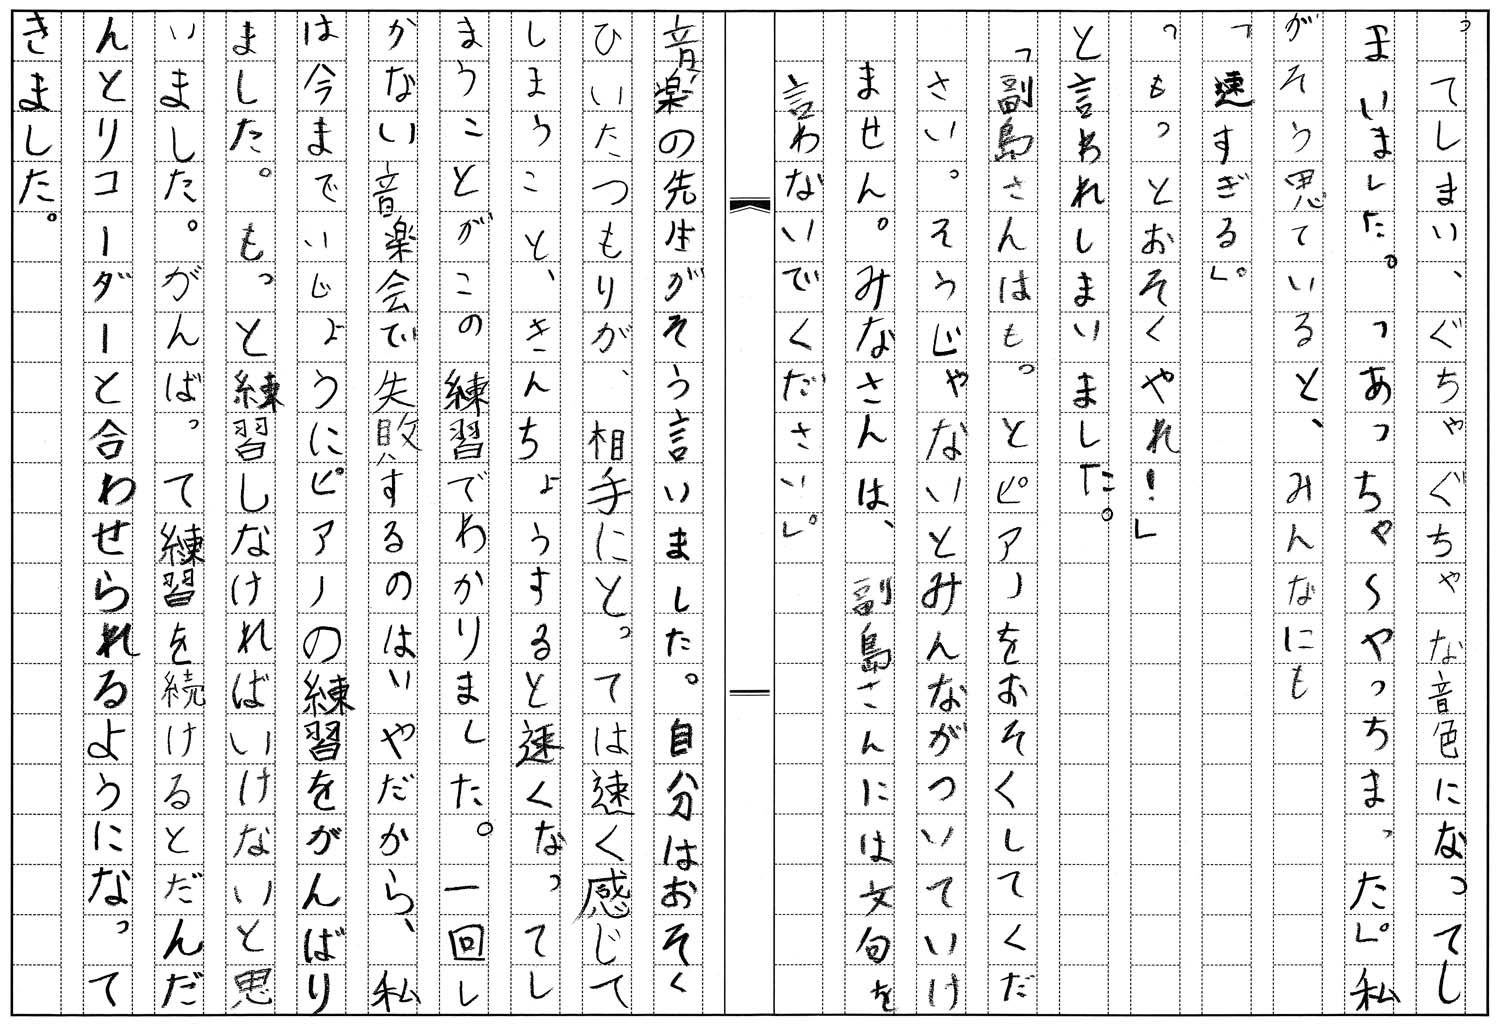 ってしまい、ぐちゃぐちゃな音色になってし
まいました。「あっちゃ～やっちまった」。私
がそう思ていると、みんなにも
「速すぎる」。
「もっとおそくやれ！」
と言われしまいました。
「副島さんはもっとピアノをおそくしてくだ
さい。そうじゃないとみんながついていけ
ません。みなさんは、副島さんには文句を
言わないでください」。
音楽の先生がそう言いました。自分はおそく
ひいたつもりが、相手にとっては速く感じて
しまうこと、きんちょうすると速くなってし
まうことがこの練習でわかりました。一回し
かない音楽会で失敗するのはいやだから、私
は今までいじょうにピアノの練習をがんばり
ました。もっと練習しなければいけないと思
いました。がんばって練習を続けるとだんだ
んとリコーダーと合わせられるようになって
きました。